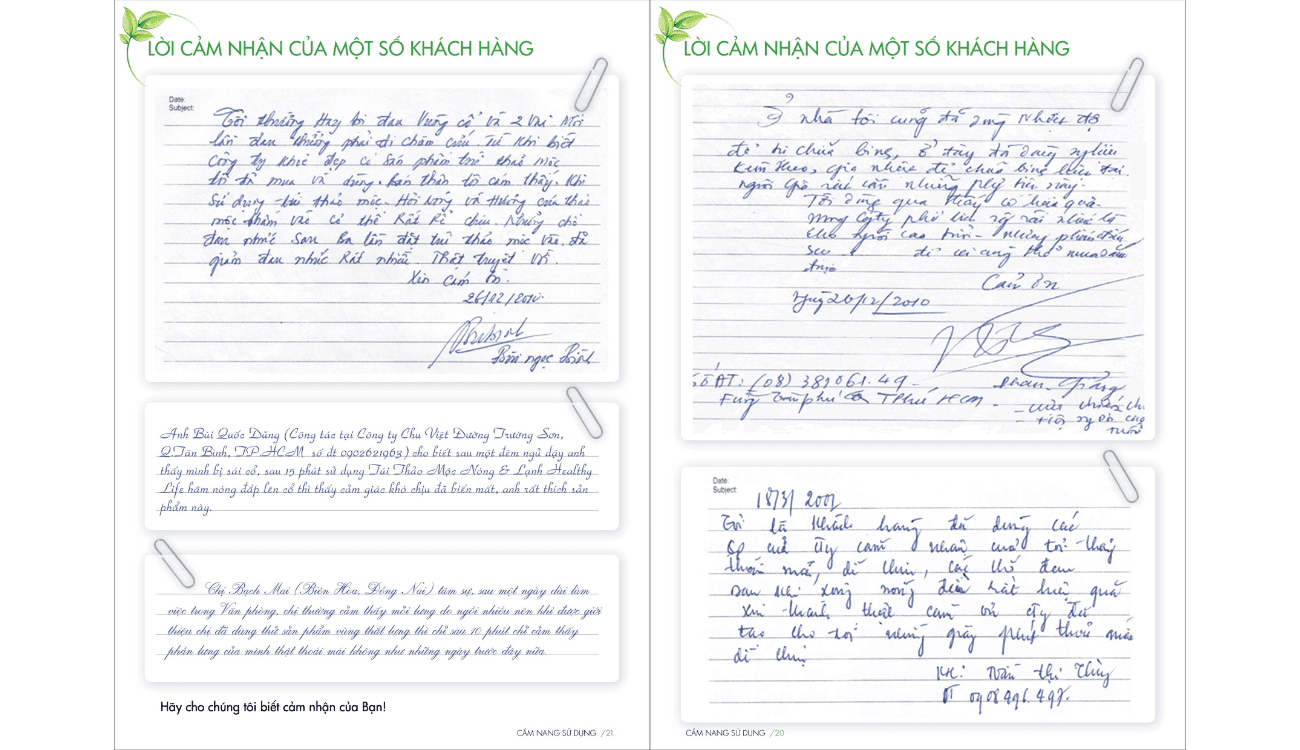 LỜI CẢM NHẬN CỦA MỘT SỐ KHÁCH HÀNG
Date:
Subject:
Tôi thường hay bị đau vùng cổ và 2 vai mỗi
lần đau thường phải đi châm cứu. Từ khi biết
Công ty Khỏe đẹp có sản phẩm túi thảo mộc
tôi đã mua về dùng. bản thân tôi cảm thấy. Khi
Sử dụng túi thảo mộc. Hơi nóng và hương của thảo
mộc thấm vào cơ thể Rất dễ chịu. Những chỗ
đau nhức sau ba lần đặt túi thảo mộc vào. đã
giảm đau nhức Rất nhiều. Thật tuyệt vời.
Xin Cám ơn.
26/12/2010.
Anh Bùi Quốc Dũng (Công tác tại Công ty Chu Việt Đường Trường Sơn,
Q.Tân Bình, TP.HCM số đt 0902621963) cho biết sau một đêm ngủ dậy anh
thấy mình bị sái cổ, sau 15 phút sử dụng Túi Thảo Mộc Nóng & Lạnh Healthy
Life hâm nóng đắp lên cổ thì thấy cảm giác khó chịu đã biến mất, anh rất thích sản
phẩm này.
Chị Bạch Mai (Biên Hòa, Đồng Nai) tâm sự, sau một ngày dài làm
việc trong Văn phòng, chị thường cảm thấy mỏi lưng do ngồi nhiều nên khi được giới
thiệu chị đã dùng thử sản phẩm vùng thắt lưng thì chỉ sau 10 phút chị cảm thấy
phần lưng của mình thật thoải mái không như những ngày trước đây nữa.
Hãy cho chúng tôi biết cảm nhận của Bạn!
CẨM NANG SỬ DỤNG /21
LỜI CẢM NHẬN CỦA MỘT SỐ KHÁCH HÀNG
Ở nhà tôi cũng đã dùng nhiều
để trị chữa bệnh, ở đây đã dùng
người già rất cần những
Tôi dùng qua thấy có hiệu quả.
mong Cty phổ biến rộng rãi nhất là
cho người cao tuổi - những
để ai cũng có thể mua
được
Cảm ơn
Ngày 26/12/2010
Số ĐT: (08) 381061.49 -
Date:
Subject:
18/3/
Tôi là khách hàng đã dùng các
sp của Cty cảm nhận của tôi thấy
thoải mái, dễ chịu,
sau khi xông nóng hiệu quả
xin thành thật cảm ơn Cty đã
tạo cho tôi những giây phút thoải mái
dễ chịu
KH: Trần Thị Thùy
ĐT 0908496.497.
CẨM NANG SỬ DỤNG /20